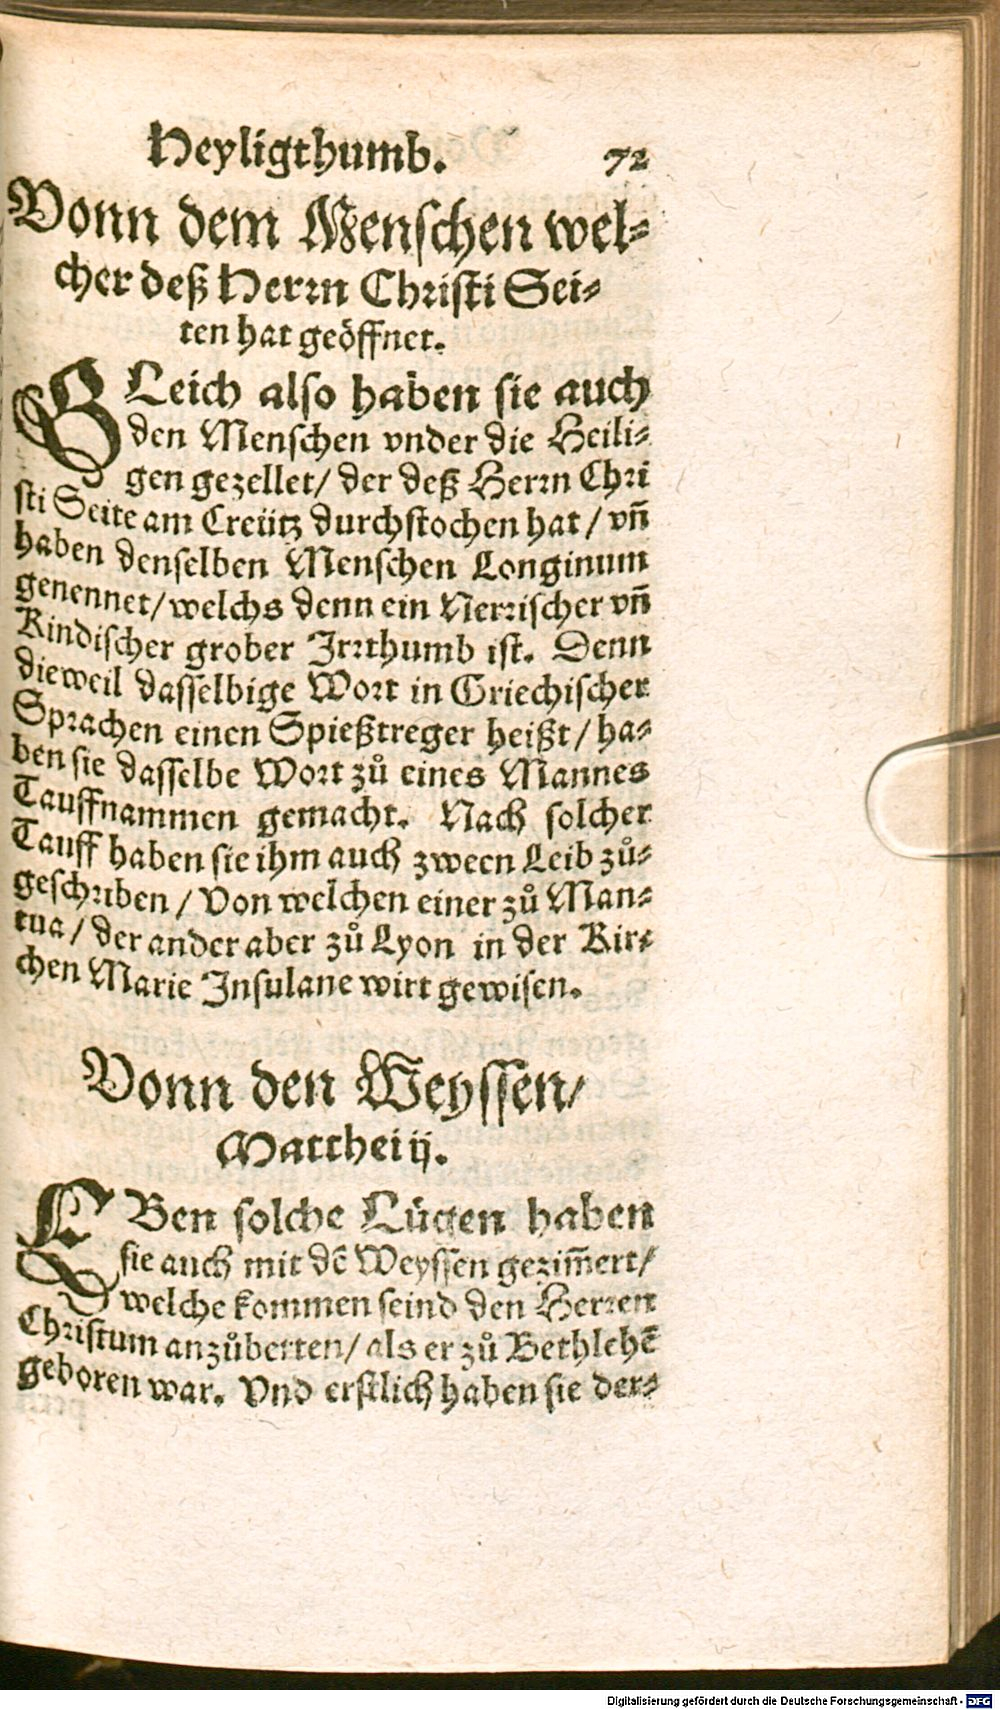 Heyligthumb. 72
Vonn dem Menschen wel-
cher deß Herrn Christi Sei-
ten hat geöffnet.
GLeich also haben sie auch
den Menschen vnder die Heili-
gen gezellet/ der deß Herrn Chri
sti Seite am Creütz durchstochen hat/ vñ
haben denselben Menschen Longinum
genennet/ welchs denn ein Nerrischer vñ
Kindischer grober Irrthumb ist. Denn
dieweil dasselbige Wort in Griechischer
Sprachen einen Spießtreger heißt/ ha-
ben sie dasselbe Wort zů eines Mannes
Tauffnammen gemacht. Nach solcher
Tauff haben sie ihm auch zween Leib zů-
geschriben/ Von welchen einer zů Man-
tua/ der ander aber zů Lyon in der Kir-
chen Marie Insulane wirt gewisen.
Vonn den Weyssen/
Matthei ij.
EBen solche Lügen haben
sie auch mit dẽ Weyssen gezim̃ert/
welche kommen seind den Herren
Christum anzůbetten/ als er zů Bethlehẽ
geboren war. Vnd erstlich haben sie der-
Digitalisierung gefördert durch die Deutsche Forschungsgemeinschaft - DFG